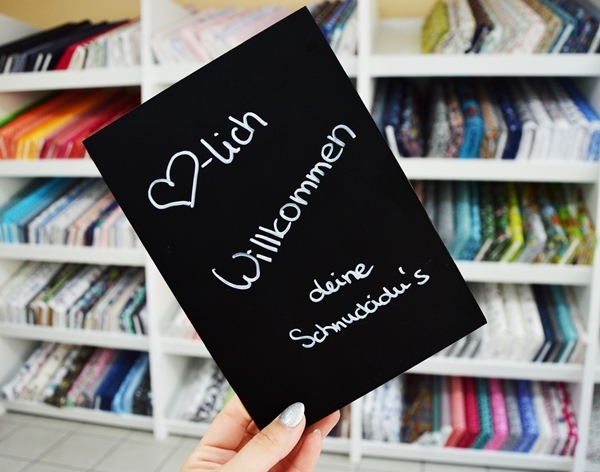 ♡-lich
Willkommen
deine
Schnuddidu's